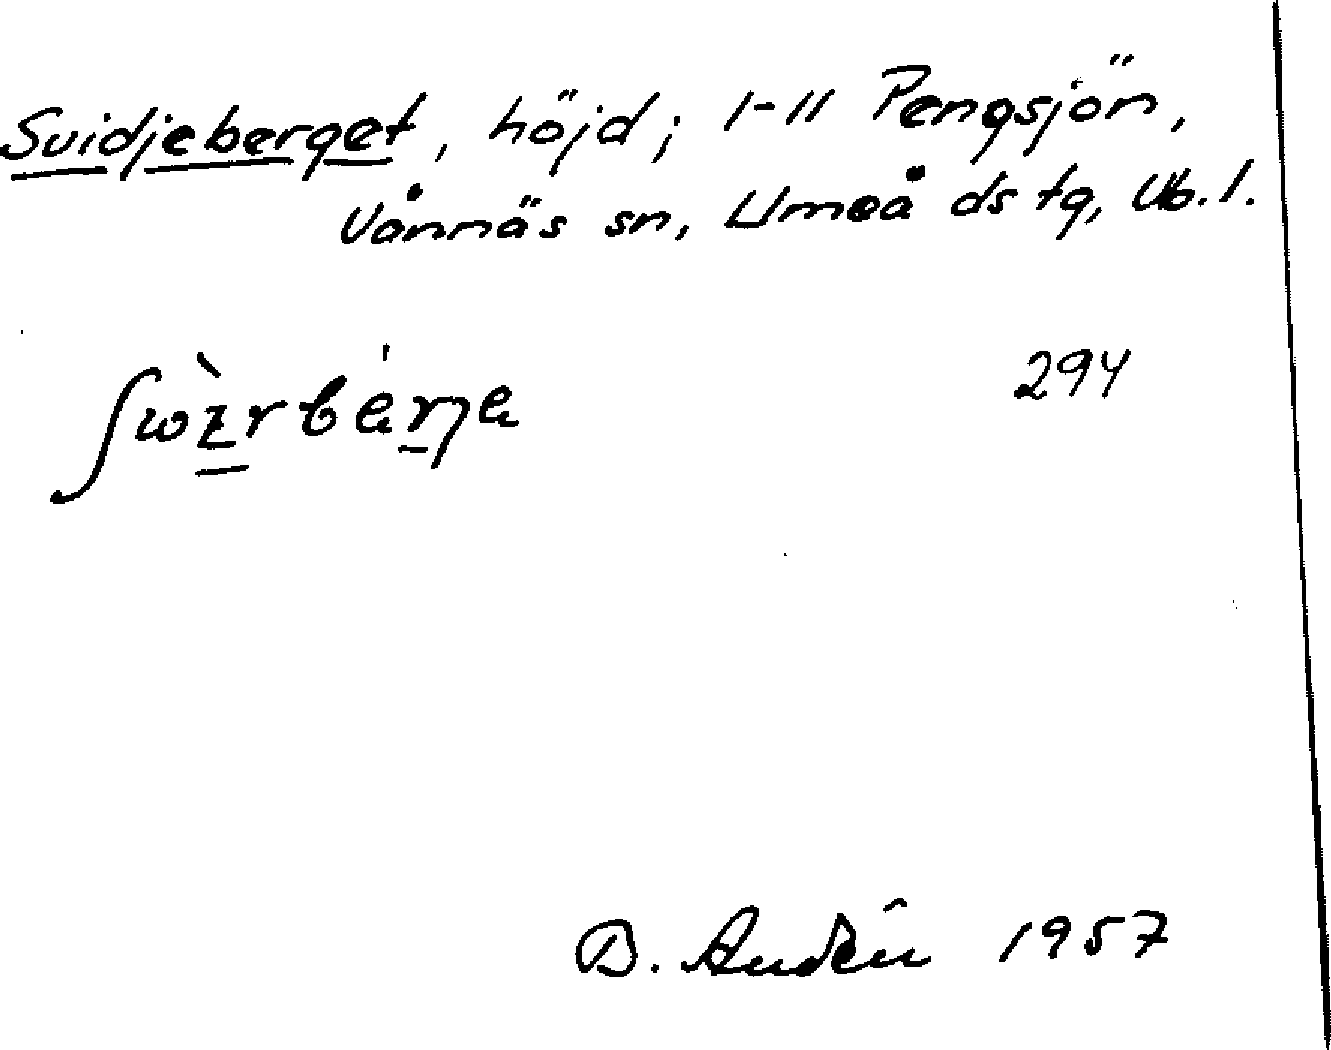 Svidjeberget, höjd; I-II Pengsjön,
Vännäs sn, Umeå dstg, Vb. l.
294
B. Audén 1957